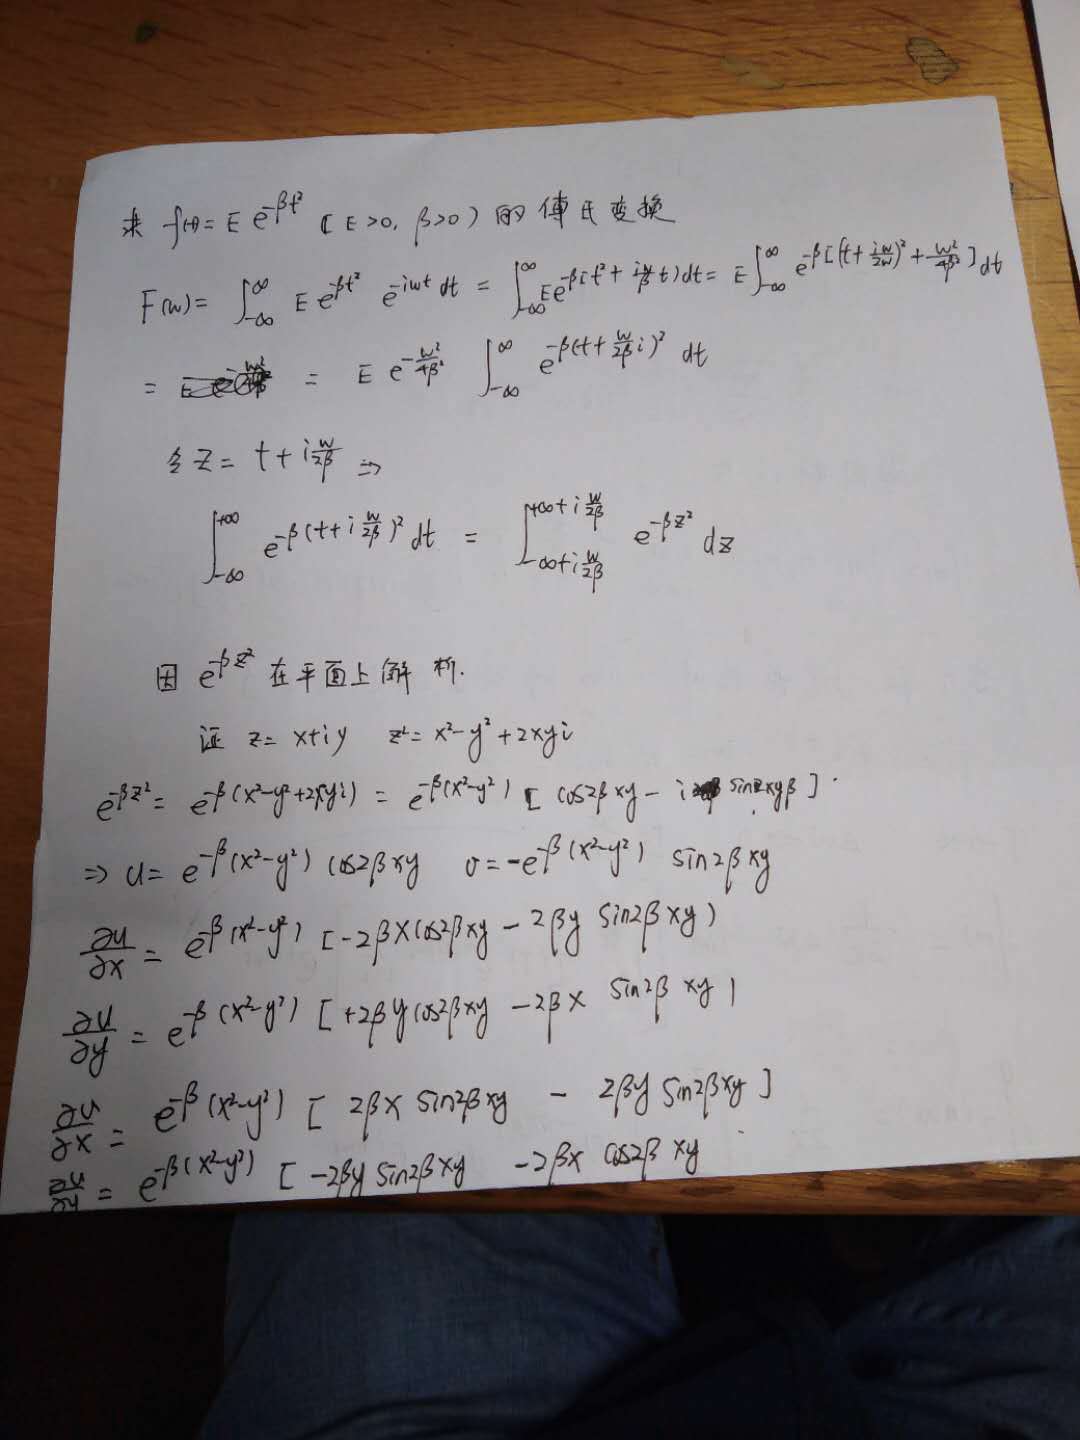 求 f(t)= E e^{-βt²} ( E>0, β>0 ) 的傅氏变换
F(w)= ∫_{-∞}^{∞} E e^{-βt²} e^{-iwt} dt = ∫_{-∞}^{∞} E e^{-β(t²+ \frac{iw}{β} t)} dt = E ∫_{-∞}^{∞} e^{-β[(t+ \frac{iw}{2w})² + \frac{w²}{4β²}]} dt
= = E e^{-\frac{w²}{4β²}} ∫_{-∞}^{∞} e^{-β(t+ \frac{w}{2β} i)²} dt
令 Z= t+ i\frac{w}{2β} ⇒
∫_{-∞}^{+∞} e^{-β(t+ i\frac{w}{2β})²} dt = ∫_{-∞+i\frac{w}{2β}}^{+∞+i\frac{w}{2β}} e^{-βz²} dz
因 e^{-βz²} 在平面上解析.
证 z= x+iy z²= x²-y²+2xyi
e^{-βz²}= e^{-β(x²-y²+2xyi)} = e^{-β(x²-y²)} [ cos2βxy - i sin2xyβ ]
⇒ u= e^{-β(x²-y²)} cos2βxy v= -e^{-β(x²-y²)} sin2βxy
\frac{∂u}{∂x} = e^{-β(x²-y²)} [ -2βx cos2βxy - 2βy sin2βxy )
\frac{∂u}{∂y} = e^{-β(x²-y²)} [ +2βy cos2βxy - 2βx sin2βxy )
\frac{∂v}{∂x} = e^{-β(x²-y²)} [ 2βx sin2βxy - 2βy sin2βxy ]
= e^{-β(x²-y²)} [ -2βy sin2βxy - 2βx cos2βxy